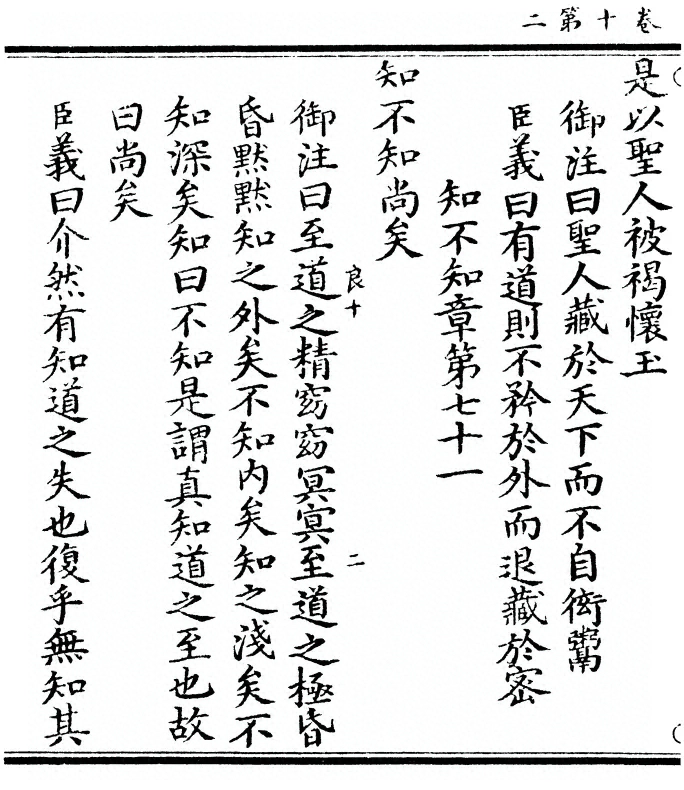 卷十第二
是以聖人被褐懷玉
御注曰聖人藏於天下而不自衒鬻
臣義曰有道則不矜於外而退藏於密
知不知章第七十一
知不知尚矣
良十
二
御注曰至道之精窈窈冥冥至道之極昏
昏黙黙知之外矣不知内矣知之淺矣不
知深矣知曰不知是謂真知道之至也故
曰尚矣
臣義曰介然有知道之失也復乎無知其